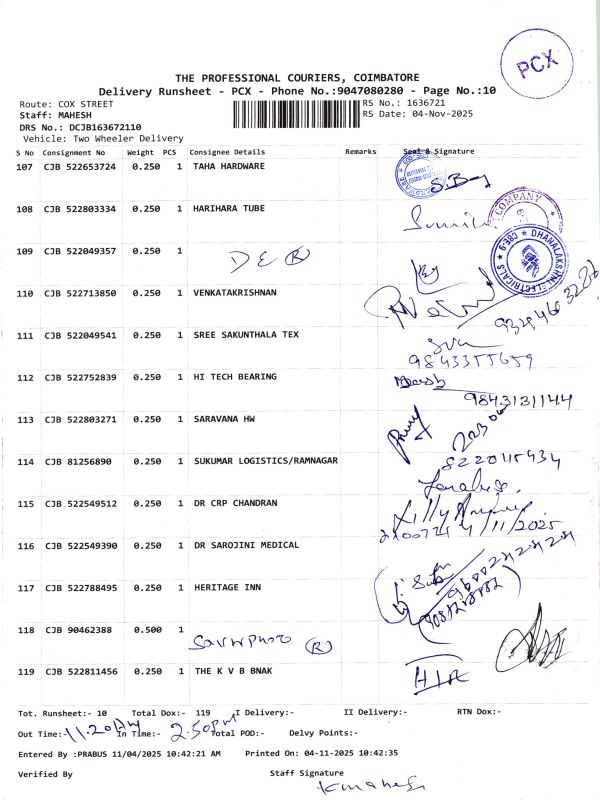 PCX
THE PROFESSIONAL COURIERS, COIMBATORE
Delivery Runsheet - PCX - Phone No.:9047080280 - Page No.:10
Route: COX STREET RS No.: 1636721
Staff: MAHESH RS Date: 04-Nov-2025
DRS No.: DCJB163672110
Vehicle: Two Wheeler Delivery
S No Consignment No Weight PCS Consignee Details Remarks Seal & Signature
107 CJB 522653724 0.250 1 TAHA HARDWARE
108 CJB 522803334 0.250 1 HARIHARA TUBE
COMPANY
109 CJB 522049357 0.250 1
DHANALAKSHMI ELECTRICALS
110 CJB 522713850 0.250 1 VENKATAKRISHNAN
111 CJB 522049541 0.250 1 SREE SAKUNTHALA TEX
9843355659
112 CJB 522752839 0.250 1 HI TECH BEARING
9843131144
113 CJB 522803271 0.250 1 SARAVANA HW
114 CJB 81256890 0.250 1 SUKUMAR LOGISTICS/RAMNAGAR
115 CJB 522549512 0.250 1 DR CRP CHANDRAN
4/11/2025
116 CJB 522549390 0.250 1 DR SAROJINI MEDICAL
117 CJB 522788495 0.250 1 HERITAGE INN
118 CJB 90462388 0.500 1
119 CJB 522811456 0.250 1 THE K V B BNAK
Tot. Runsheet:- 10 Total Dox:- 119 I Delivery:- II Delivery:- RTN Dox:-
Out Time:- 11.20AM In Time:- 2.50pm Total POD:- Delvy Points:-
Entered By :PRABUS 11/04/2025 10:42:21 AM Printed On: 04-11-2025 10:42:35
Verified By Staff Signature